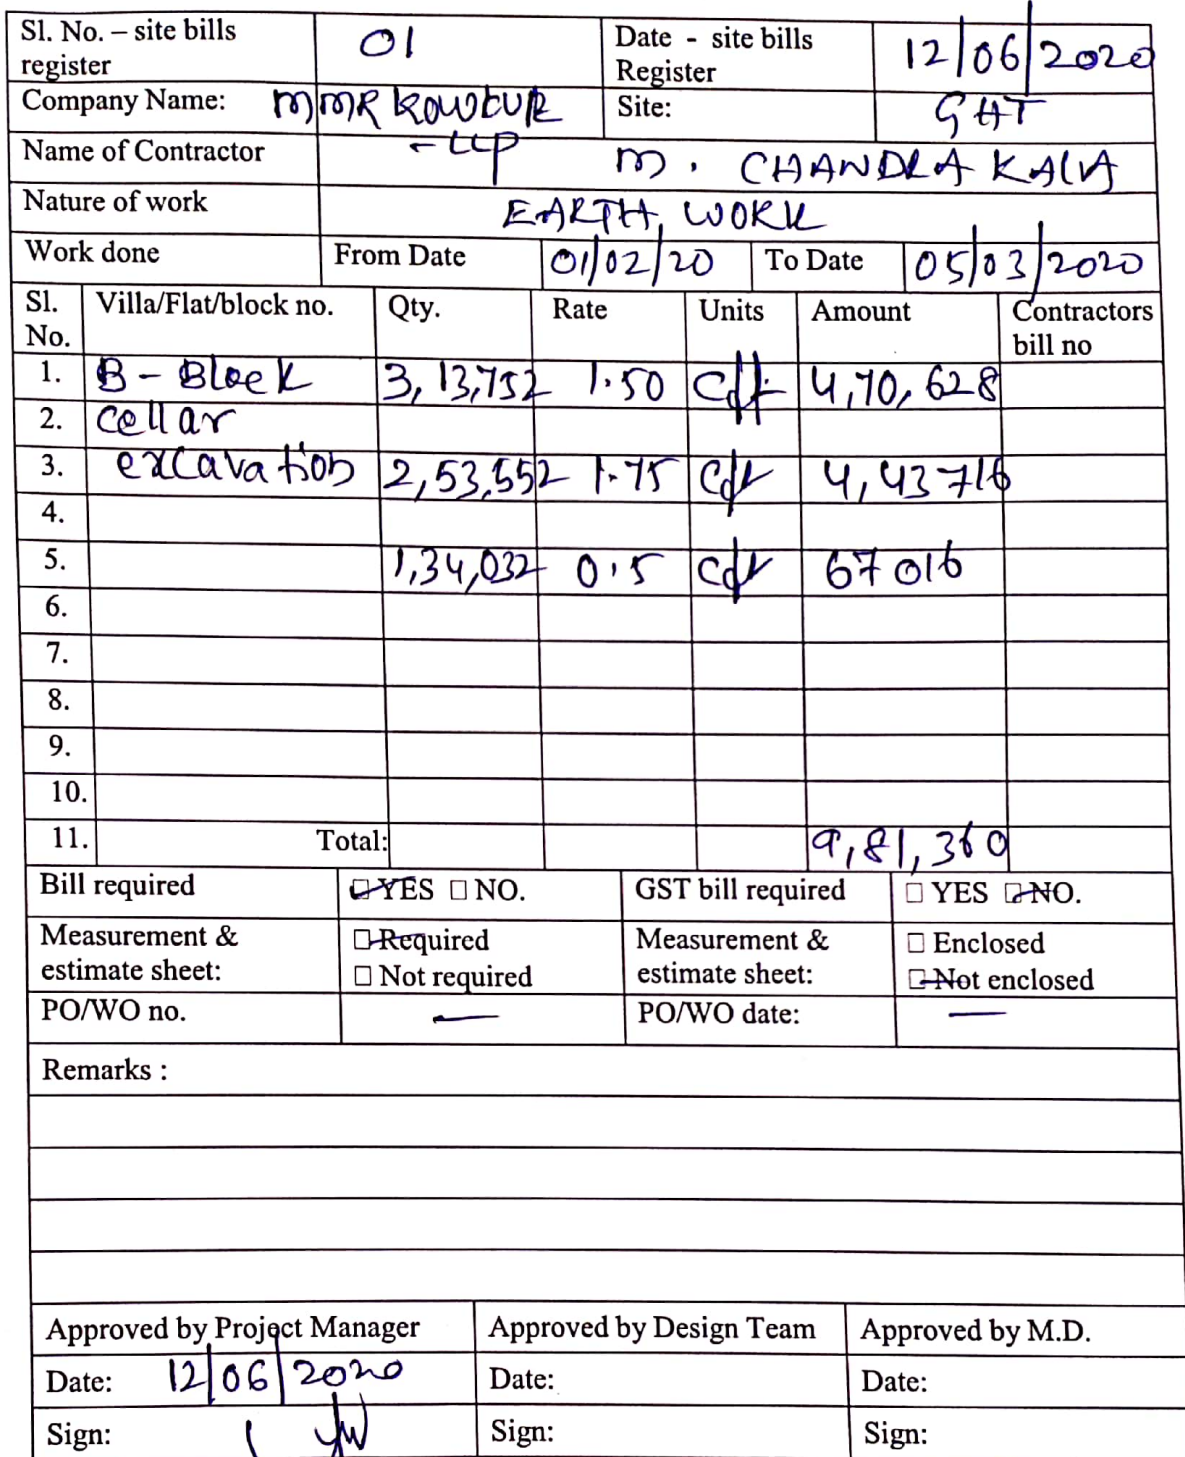 Sl. No. – site bills register 01 Date - site bills Register 12/06/2020
Company Name: MMR KOWKUR Site: GHT
- LLP
Name of Contractor M. CHANDRA KALA
Nature of work EARTH WORK
Work done From Date 01/02/20 To Date 05/03/2020
Sl. No. Villa/Flat/block no. Qty. Rate Units Amount Contractors bill no
1. B - Block 3,13,752 1.50 cft 4,70,628
2. cellar
3. excavation 2,53,552 1.75 cft 4,43716
4.
5. 1,34,032 0.5 cft 67016
6.
7.
8.
9.
10.
11. Total: 9,81,360
Bill required YES NO. GST bill required YES NO.
Measurement & estimate sheet: Required Not required Measurement & estimate sheet: Enclosed Not enclosed
PO/WO no. — PO/WO date: —
Remarks :
Approved by Project Manager Approved by Design Team Approved by M.D.
Date: 12/06/2020 Date: Date:
Sign: Sign: Sign: